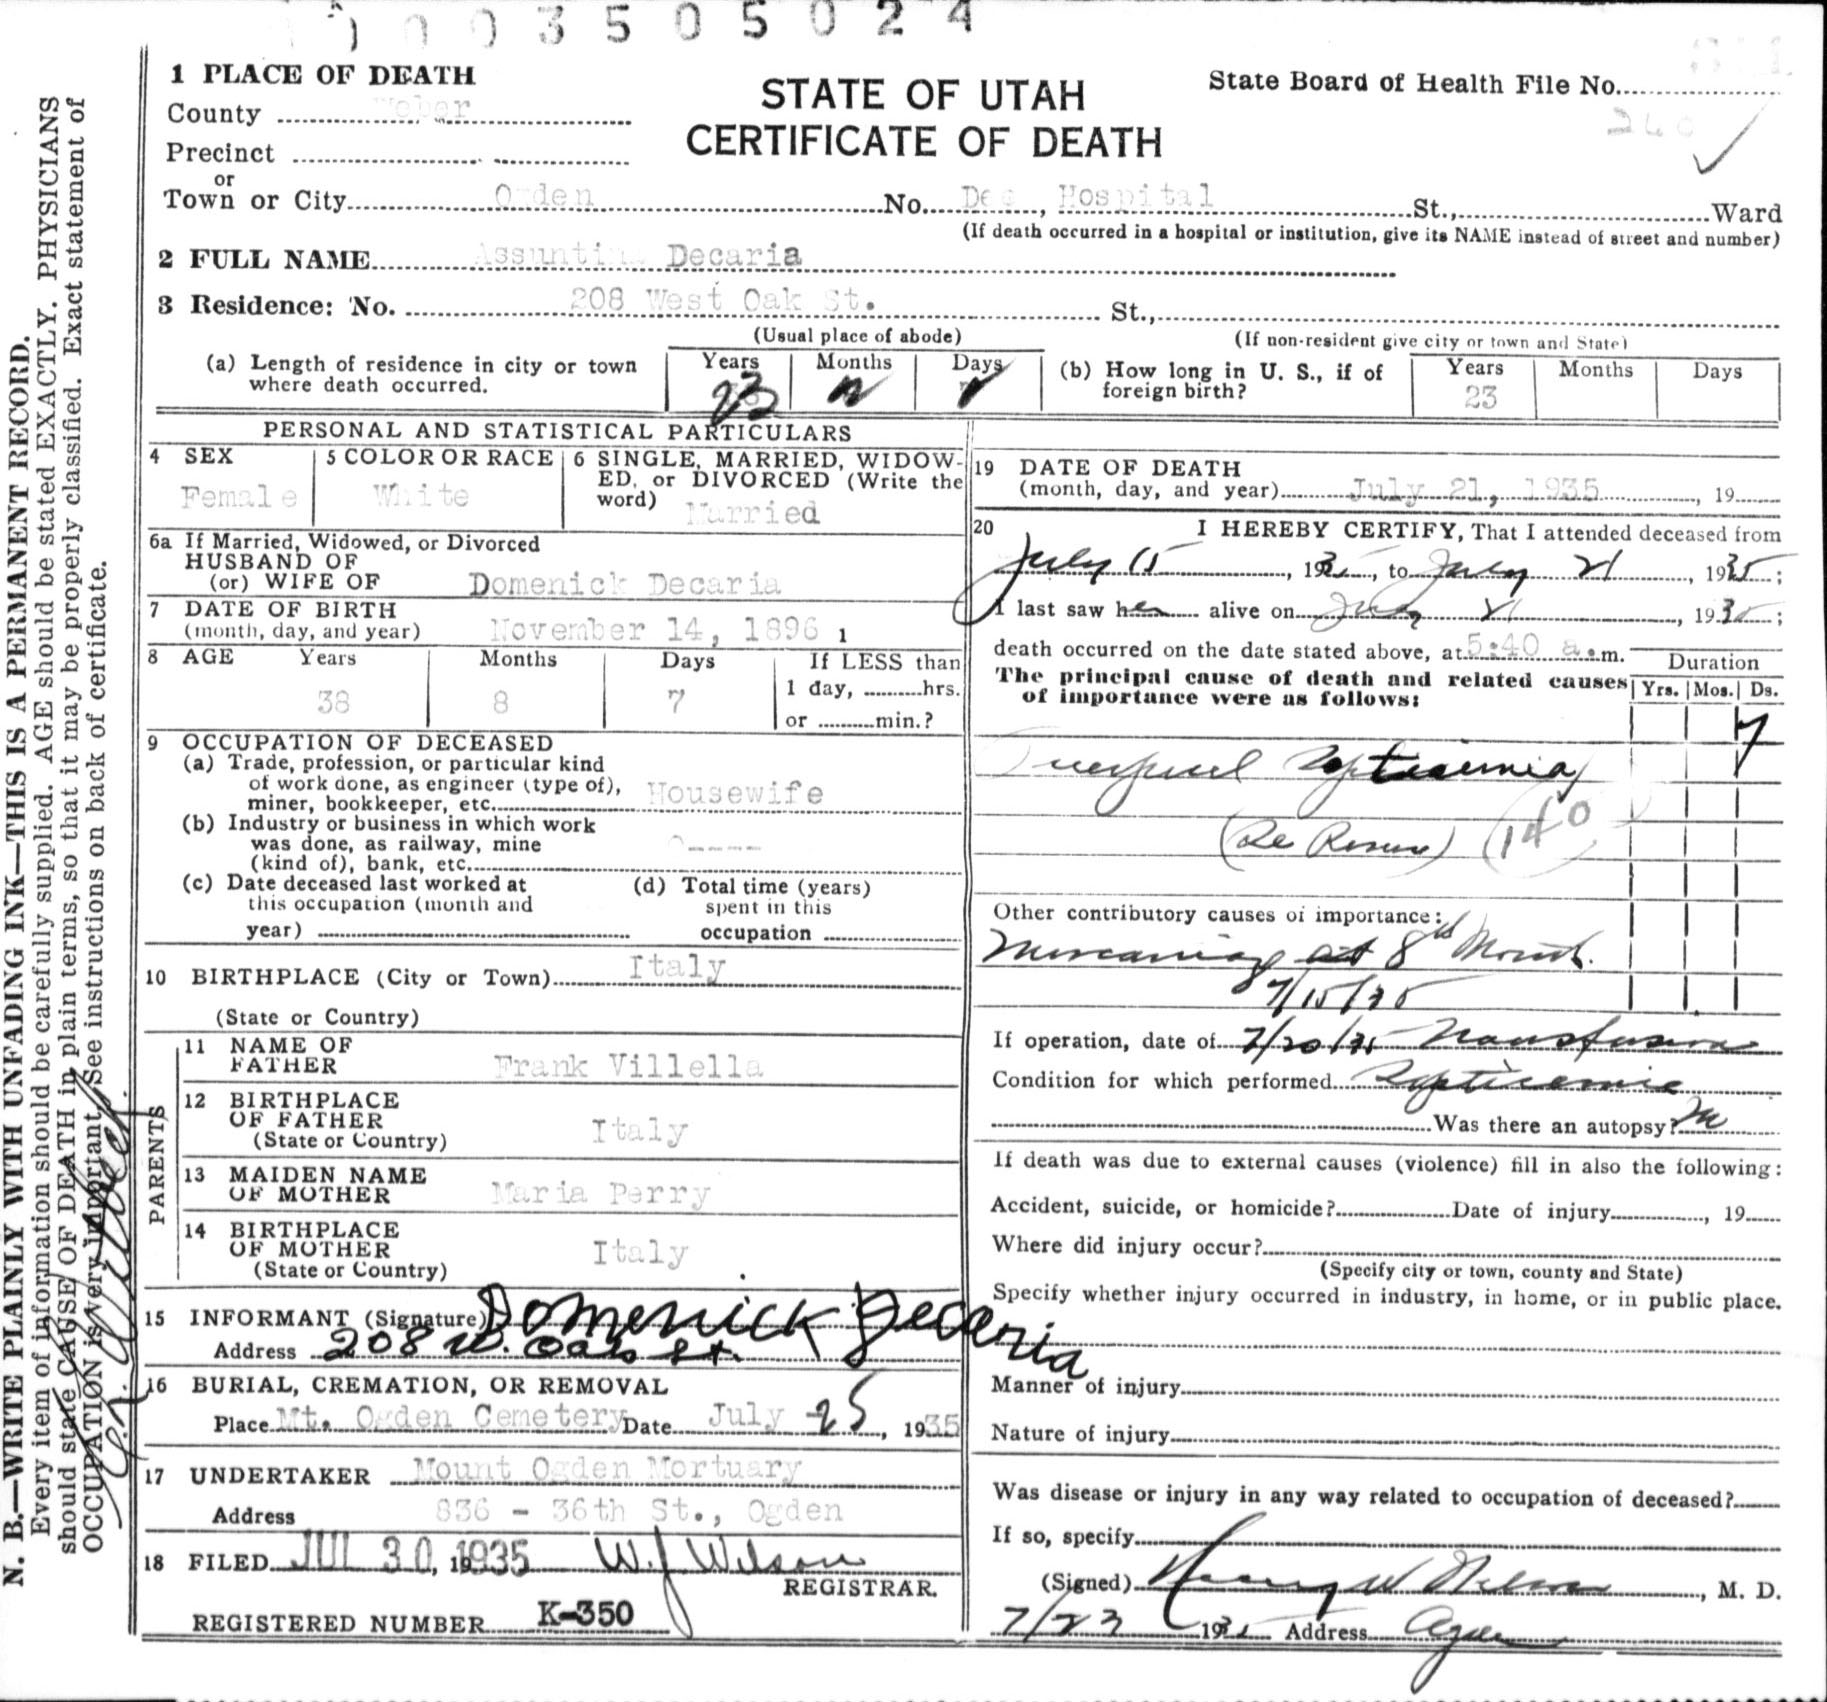 0 0 3 5 0 5 0 2 4
1 PLACE OF DEATH
County Weber
Precinct
or
Town or City Ogden No. Dee, Hospital St., Ward
(If death occurred in a hospital or institution, give its NAME instead of street and number)
STATE OF UTAH
CERTIFICATE OF DEATH
State Board of Health File No.
2 FULL NAME Assuntina Decaria
3 Residence: No. 208 West Oak St. St.,
(Usual place of abode) (If non-resident give city or town and State)
(a) Length of residence in city or town where death occurred. Years 23 Months Days
(b) How long in U. S., if of foreign birth? Years 23 Months Days
PERSONAL AND STATISTICAL PARTICULARS
4 SEX Female
5 COLOR OR RACE White
6 SINGLE, MARRIED, WIDOW-
ED, or DIVORCED (Write the
word) Married
6a If Married, Widowed, or Divorced
HUSBAND OF
(or) WIFE OF Domenick Decaria
7 DATE OF BIRTH
(month, day, and year) November 14, 1896 1
8 AGE Years 38 Months 8 Days 7 If LESS than
1 day, hrs.
or min.?
9 OCCUPATION OF DECEASED
(a) Trade, profession, or particular kind
of work done, as engineer (type of),
miner, bookkeeper, etc. Housewife
(b) Industry or business in which work
was done, as railway, mine
(kind of), bank, etc. ----
(c) Date deceased last worked at
this occupation (month and
year)
(d) Total time (years)
spent in this
occupation
10 BIRTHPLACE (City or Town) Italy
(State or Country)
PARENTS
11 NAME OF
FATHER Frank Villella
12 BIRTHPLACE
OF FATHER
(State or Country) Italy
13 MAIDEN NAME
OF MOTHER Maria Perry
14 BIRTHPLACE
OF MOTHER
(State or Country) Italy
15 INFORMANT (Signature) Domenick Decaria
Address 208 W. Oak St.
16 BURIAL, CREMATION, OR REMOVAL
Place Mt. Ogden Cemetery Date July 25, 1935
17 UNDERTAKER Mount Ogden Mortuary
Address 836 - 36th St., Ogden
18 FILED JUL 30, 1935 W. J Wilson
REGISTRAR.
REGISTERED NUMBER K-350
19 DATE OF DEATH
(month, day, and year) July 21, 1935, 19
20 I HEREBY CERTIFY, That I attended deceased from
July 15, 1935, to July 21, 1935;
I last saw her alive on July 21, 1935;
death occurred on the date stated above, at 5:40 a.m.
The principal cause of death and related causes
of importance were as follows:
Duration
Yrs. Mos. Ds.
7
Puerperal Septicemia
140
Other contributory causes of importance:
Miscarriage at 8th Month.
7/15/35
If operation, date of 7/20/35 Transfusion
Condition for which performed Septicemia
Was there an autopsy?
If death was due to external causes (violence) fill in also the following:
Accident, suicide, or homicide? Date of injury, 19
Where did injury occur?
(Specify city or town, county and State)
Specify whether injury occurred in industry, in home, or in public place.
Manner of injury
Nature of injury
Was disease or injury in any way related to occupation of deceased?
If so, specify
(Signed) Henry W Nelson, M. D.
7/23 1935 Address Ogden
N. B.—WRITE PLAINLY WITH UNFADING INK—THIS IS A PERMANENT RECORD.
Every item of information should be carefully supplied. AGE should be stated EXACTLY. PHYSICIANS
should state CAUSE OF DEATH in plain terms, so that it may be properly classified. Exact statement of
OCCUPATION is very important. See instructions on back of certificate.